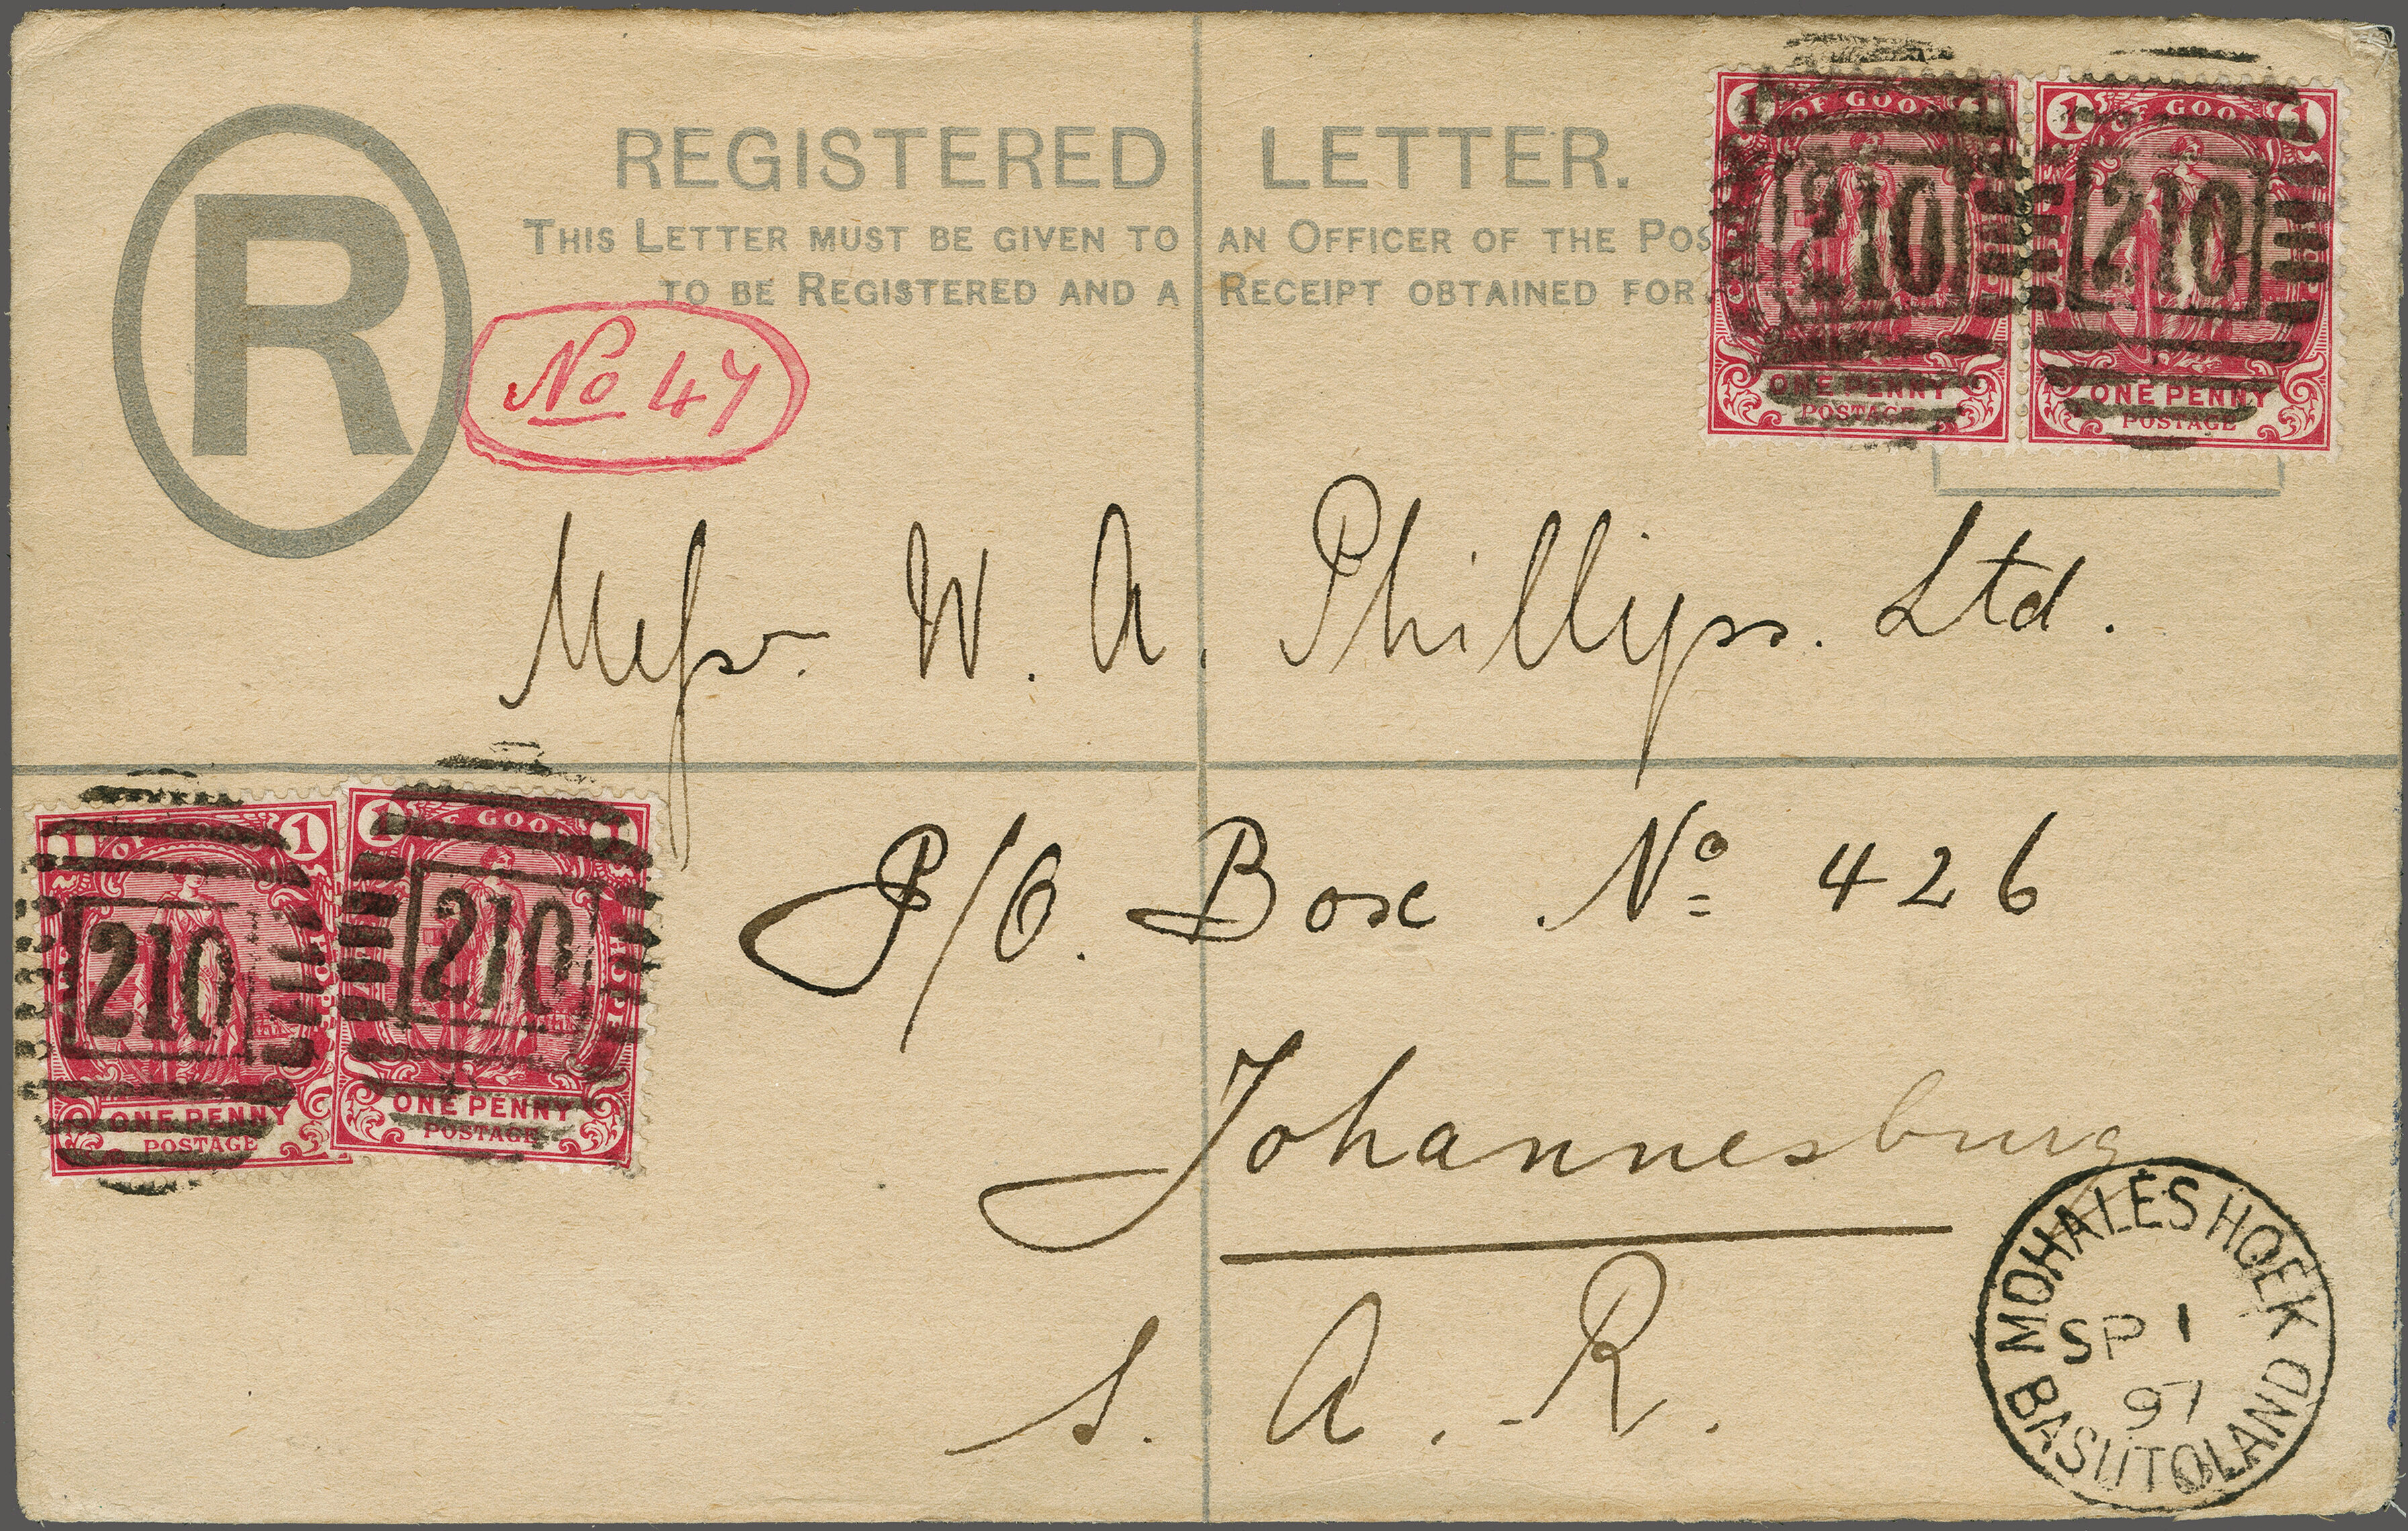 REGISTERED LETTER.
THIS LETTER MUST BE GIVEN TO AN OFFICER OF THE POS
TO BE REGISTERED AND A RECEIPT OBTAINED FOR
R
No 47
1 OF GOO 1
210
ONE PENNY
POSTAGE
1 OF GOO 1
210
ONE PENNY
POSTAGE
Messrs. W. A. Phillips. Ltd.
P/O. Box No 426
Johannesburg
S. A. R.
1 OF 1
HOPE
210
ONE PENNY
POSTAGE
1 GOO 1
HOPE
210
ONE PENNY
POSTAGE
MOHALES HOEK
SP 1
97
BASUTOLAND